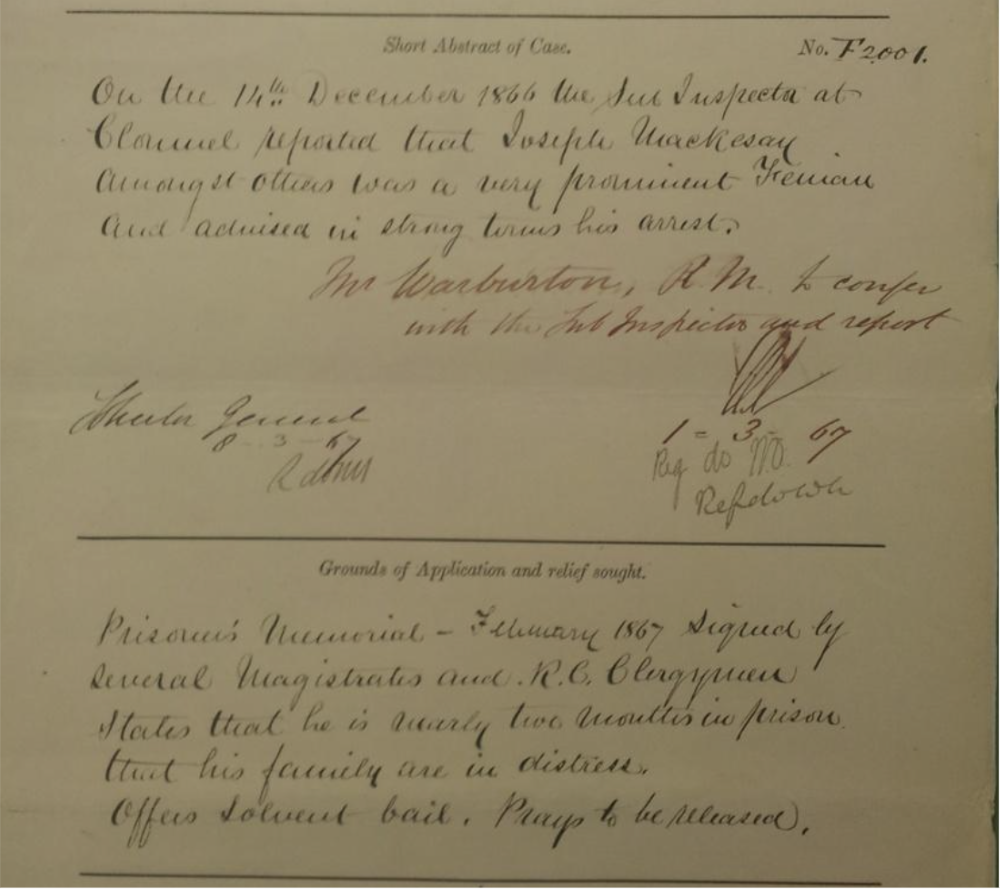 Short Abstract of Case.
No. F2001.
On the 14th December 1866 the Sub Inspector at
Clonmel reported that Joseph Mackesay
Amongst others was a very prominent Fenian
And advised in strong terms his arrest.
Mr Warburton, R.M. to confer
with the Sub Inspector and report
1 - 3 - 67
General
8 - 3 - 67
Grounds of Application and relief sought.
Prisoner's Memorial – February 1867 Signed by
Several Magistrates and R.C. Clergymen
States that he is nearly two months in prison
that his family are in distress.
Offers Solvent bail. Prays to be released.